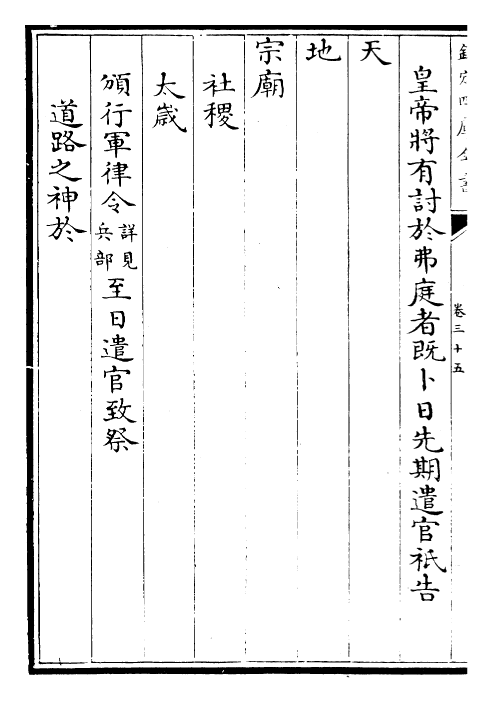 欽定四庫全書
卷三十五
皇帝將有討於弗庭者既卜日先期遣官祗告
天
地
宗廟
社稷
太歲
頒行軍律令詳見兵部至日遣官致祭
道路之神於